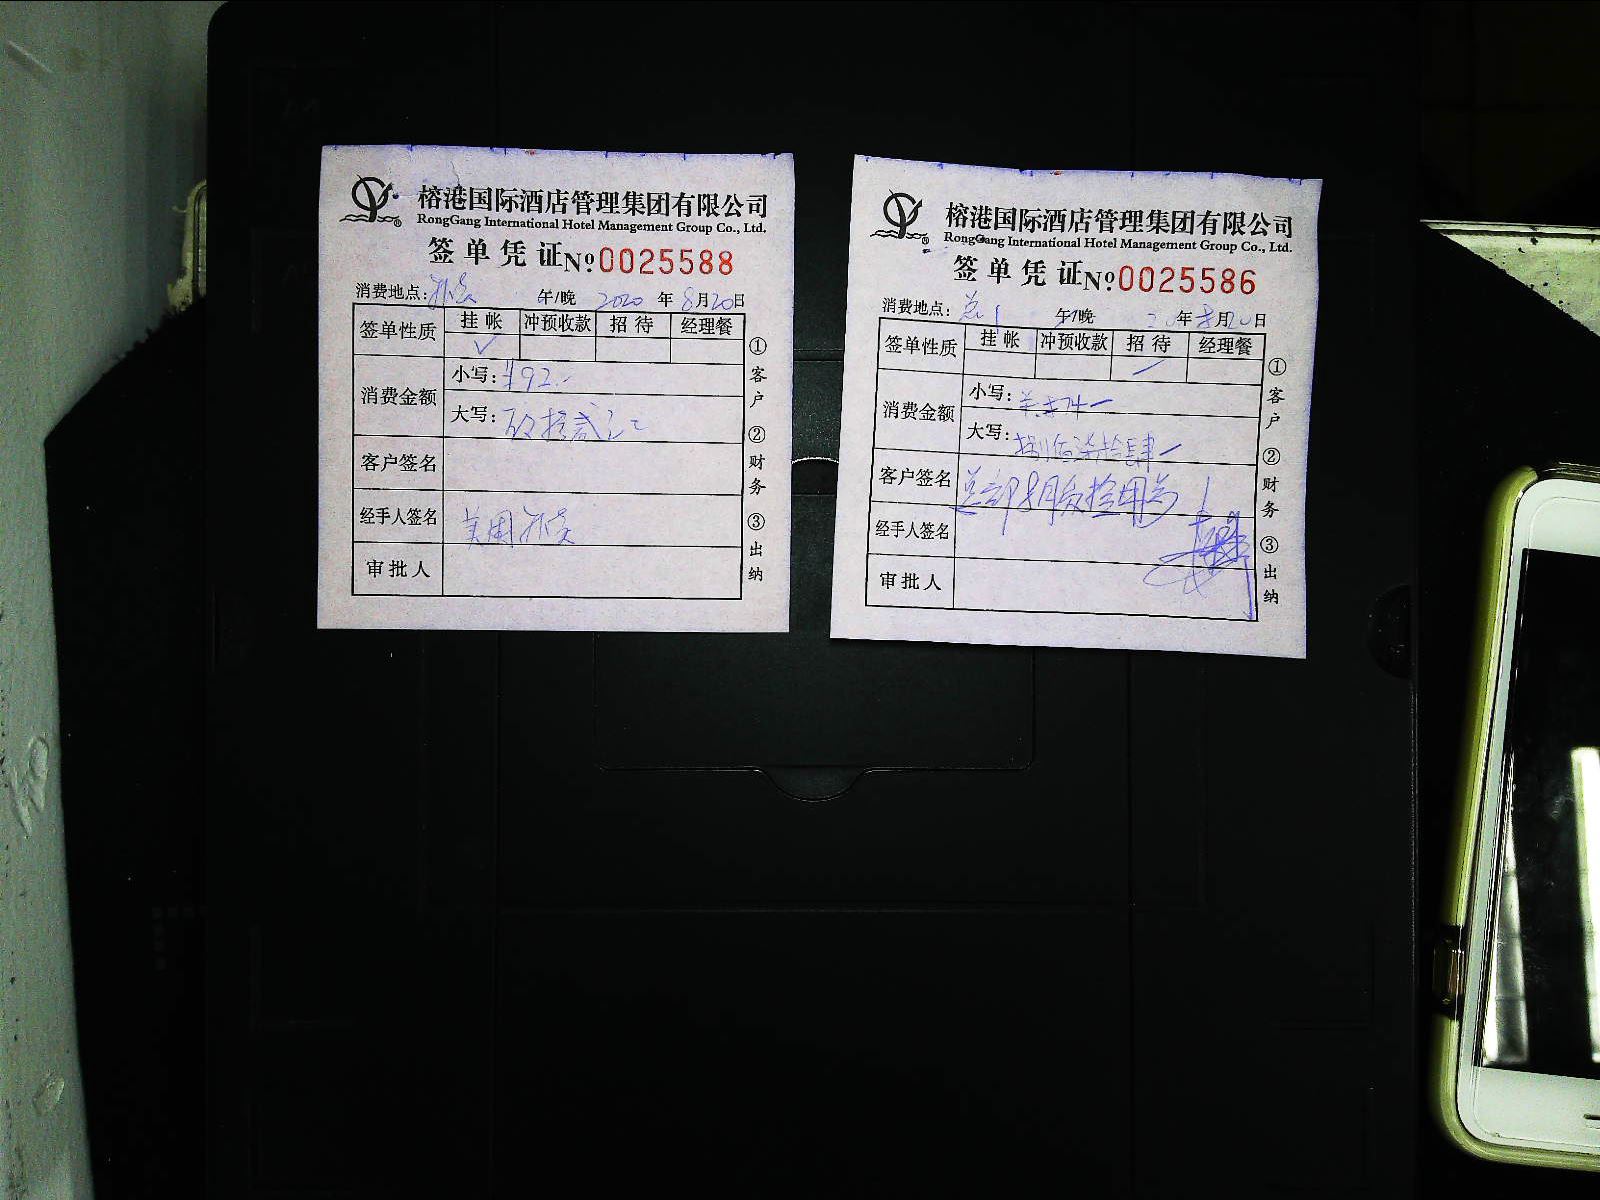 榕港国际酒店管理集团有限公司
RongGang International Hotel Management Group Co., Ltd.
签单凭证 №0025588
消费地点: 午/晚 2020年8月20日
签单性质 挂帐 冲预收款 招待 经理餐
✓
消费金额
小写: ¥92.-
大写:
客户签名
经手人签名
审批人
①客户 ②财务 ③出纳
榕港国际酒店管理集团有限公司
RongGang International Hotel Management Group Co., Ltd.
签单凭证 №0025586
消费地点: 午/晚 20年8月20日
签单性质 挂帐 冲预收款 招待 经理餐
消费金额
小写:
大写: 捌佰柒拾肆
客户签名
经手人签名
审批人
①客户 ②财务 ③出纳